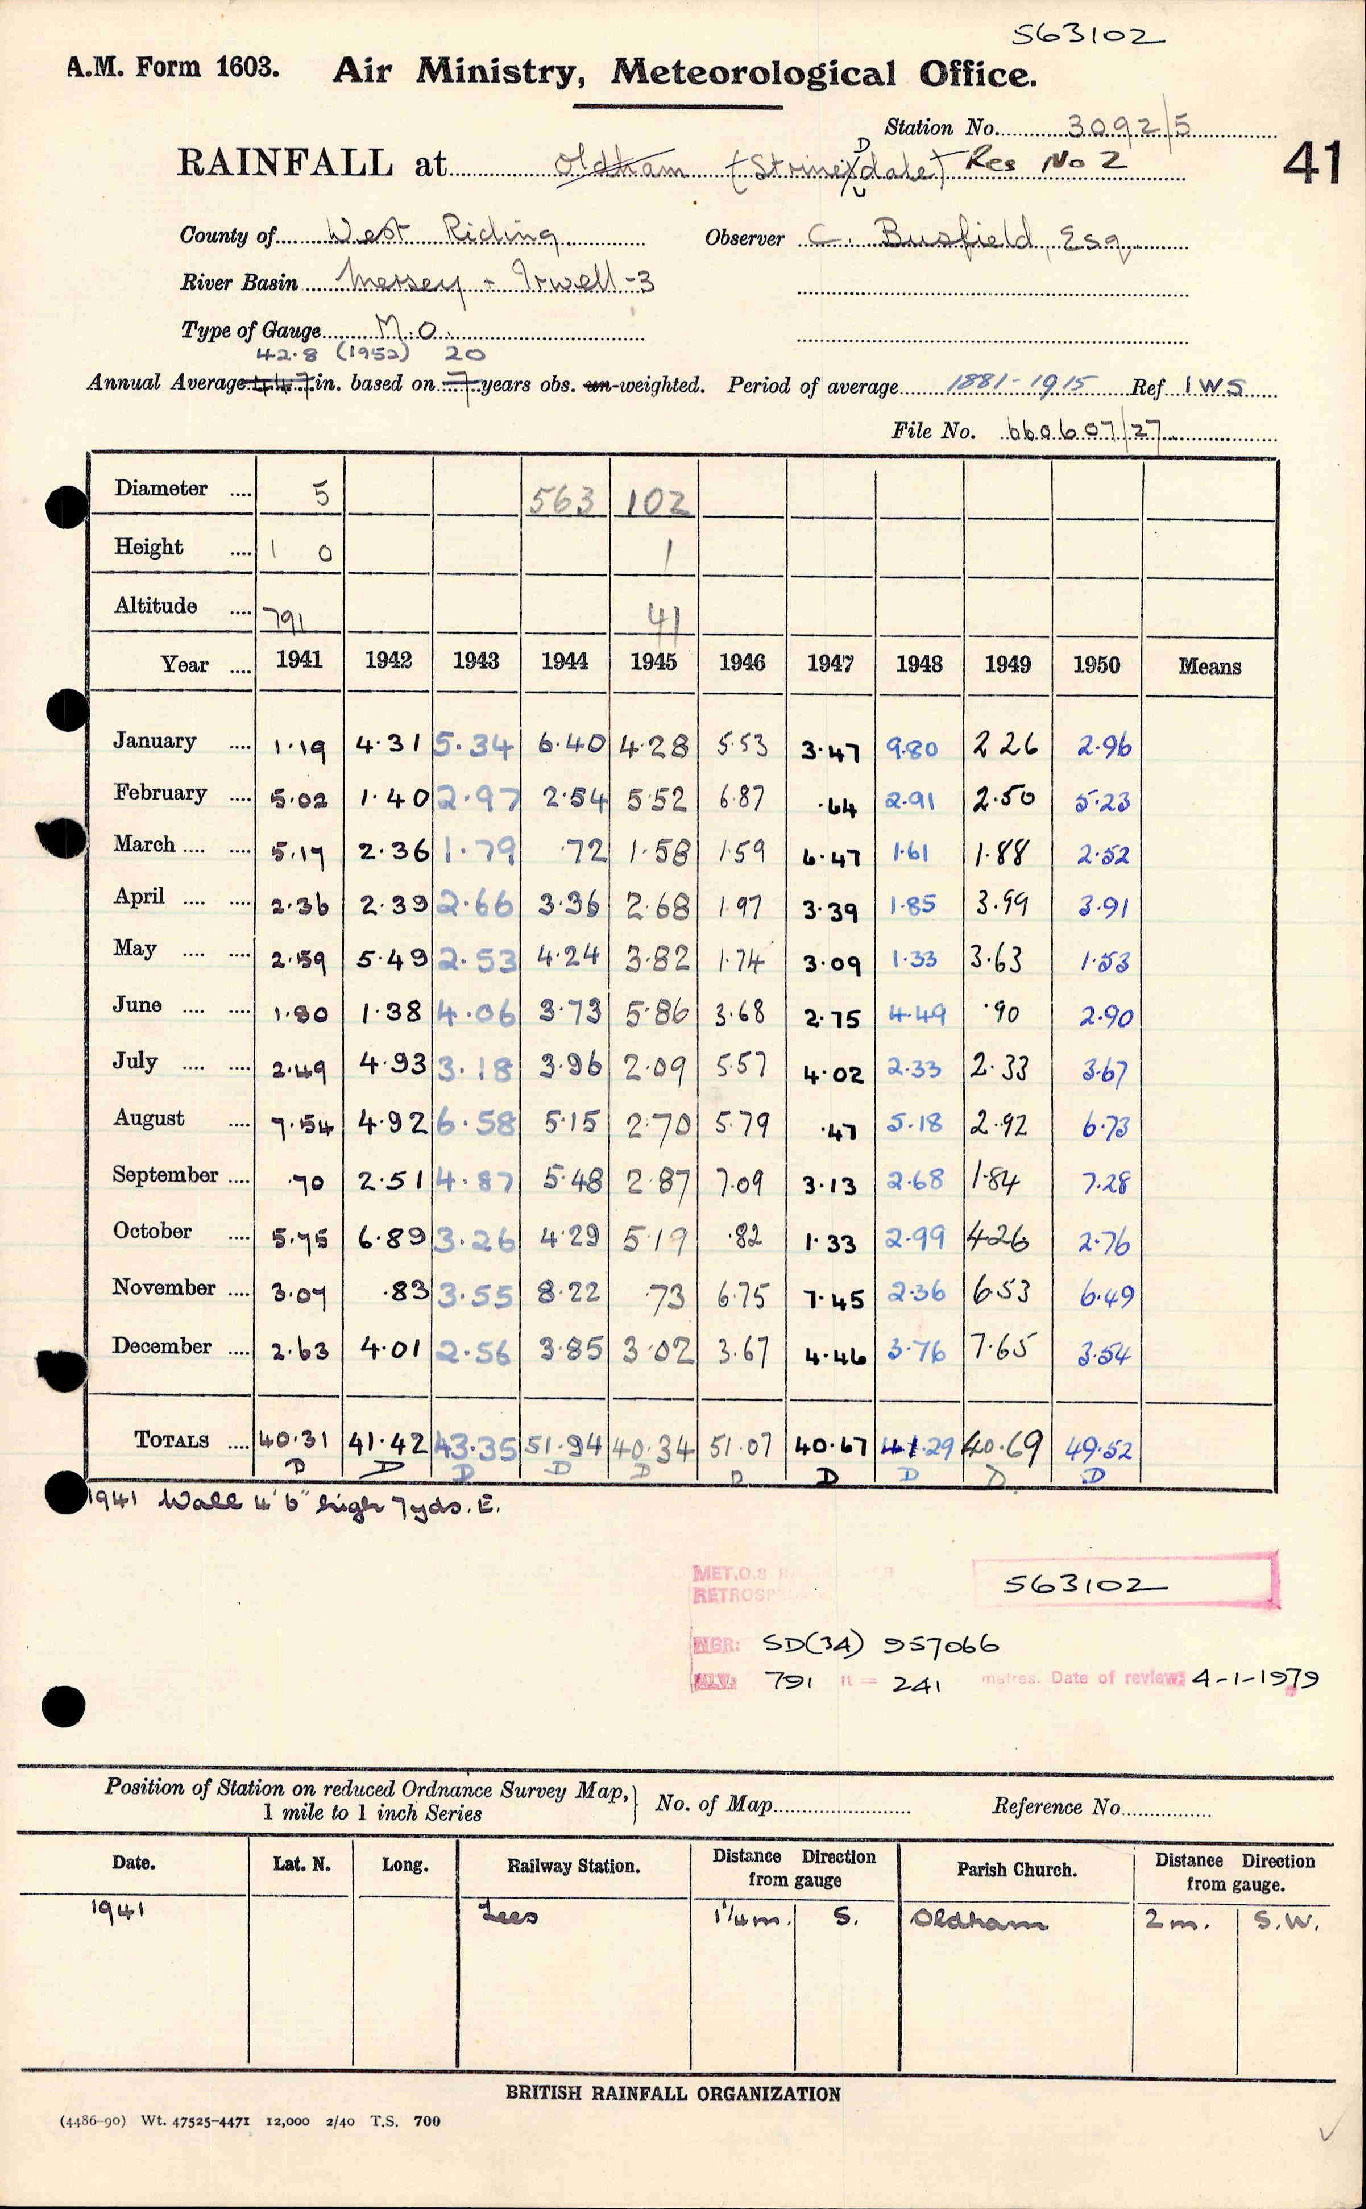 563102
A.M. Form 1603. Air Ministry, Meteorological Office.
Station No. 3092/5
41
RAINFALL at Oldham (Strinesdale) Res No 2
D
County of West Riding Observer C. Busfield, Esq
River Basin Mersey + Irwell-3
Type of Gauge M.O.
42.8 (1952) 20
Annual Average 44.7 in. based on 7 years obs. un-weighted. Period of average 1881-1915 Ref IWS
File No. 660607/27
Diameter .... 5 563 102
Height .... 1 0 1
Altitude .... 791 41
Year .... 1941 1942 1943 1944 1945 1946 1947 1948 1949 1950 Means
January .... 1.19 4.31 5.34 6.40 4.28 5.53 3.47 9.80 2 26 2.96
February .... 5.02 1.40 2.97 2.54 5.52 6.87 .64 2.91 2.50 5.23
March .... .... 5.17 2.36 1.79 .72 1.58 1.59 6.47 1.61 1.88 2.52
April .... .... 2.36 2.39 2.66 3.36 2.68 1.97 3.39 1.85 3.99 3.91
May .... .... 2.59 5.49 2.53 4.24 3.82 1.74 3.09 1.33 3.63 1.53
June .... .... 1.80 1.38 4.06 3.73 5.86 3.68 2.75 4.49 .90 2.90
July .... .... 2.49 4.93 3.18 3.96 2.09 5.57 4.02 2.33 2.33 3.67
August .... 7.54 4.92 6.58 5.15 2.70 5.79 .47 5.18 2.92 6.73
September .... .70 2.51 4.87 5.48 2.87 7.09 3.13 2.68 1.84 7.28
October .... 5.75 6.89 3.26 4.29 5.19 .82 1.33 2.99 4.26 2.76
November .... 3.07 .83 3.55 8.22 .73 6.75 7.45 2.36 6.53 6.49
December .... 2.63 4.01 2.56 3.85 3.02 3.67 4.46 3.76 7.65 3.54
TOTALS .... 40.31 41.42 43.35 51.94 40.34 51.07 40.67 41.29 40.69 49.52
D D D D D D D D D D
1941 Wall 4'6" high 7yds. E.
MET.O.8
563102
NGR: SD(34) 957066
ALT: 791 ft = 241 metres. Date of review: 4-1-1979
Position of Station on reduced Ordnance Survey Map, 1 mile to 1 inch Series No. of Map Reference No.
Date. Lat. N. Long. Railway Station. Distance Direction from gauge Parish Church. Distance Direction from gauge.
1941 Lees 1¼m. S. Oldham 2m. S.W.
BRITISH RAINFALL ORGANIZATION
(4486-90) Wt. 47525-4471 12,000 2/40 T.S. 700